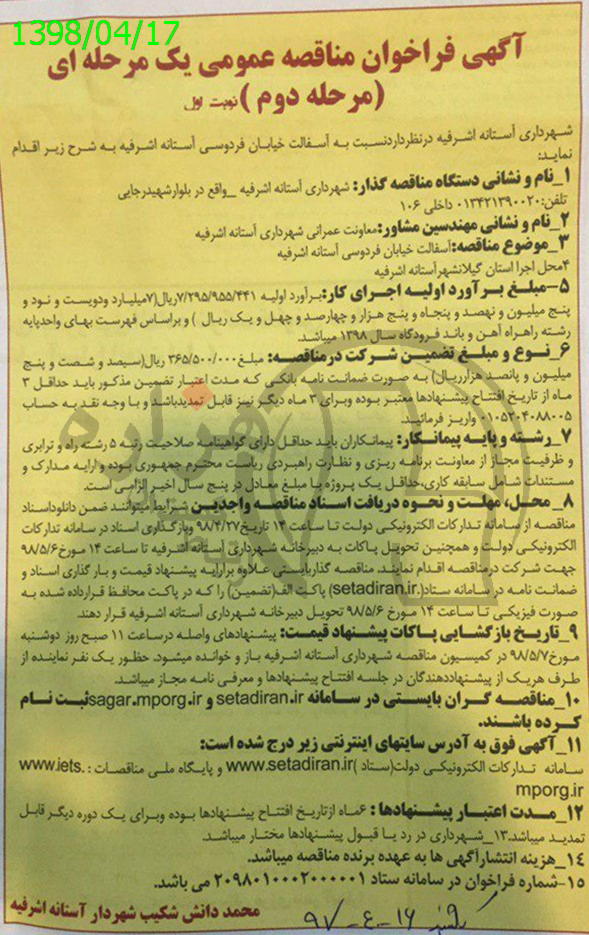 1398/04/17
آگهی فراخوان مناقصه عمومی یک مرحله ای
(مرحله دوم) نوبت اول
شهرداری آستانه اشرفیه درنظرداردنسبت به آسفالت خیابان فردوسی آستانه اشرفیه به شرح زیر اقدام
نماید:
۱_نام و نشانی دستگاه مناقصه گذار: شهرداری آستانه اشرفیه _واقع در بلوارشهیدرجایی
تلفن:۰۱۳۴۲۱۳۹۰۰۲۰ داخلی ۱۰۶
۲_نام و نشانی مهندسین مشاور:معاونت عمرانی شهرداری آستانه اشرفیه
۳_موضوع مناقصه:آسفالت خیابان فردوسی آستانه اشرفیه
۴محل اجرا استان گیلانشهرآستانه اشرفیه
۵-مبلغ برآورد اولیه اجرای کار:برآورد اولیه ۷/۲۹۵/۹۵۵/۴۴۱ریال(۷میلیارد ودویست و نود و
پنج میلیون و نهصد و پنجاه و پنج هزار و چهارصد و چهل و یک ریال ) و براساس فهرست بهای واحدپایه
رشته راهراه آهن و باند فرودگاه سال ۱۳۹۸ میباشد.
۶_نوع و مبلغ تضمین شرکت درمناقصه: مبلغ۳۶۵/۵۰۰/۰۰۰ ریال(سیصد و شصت و پنج
میلیون و پانصد هزارریال) به صورت ضمانت نامه بانکی که مدت اعتبار تضمین مذکور باید حداقل ۳
ماه از تاریخ افتتاح پیشنهادها معتبر بوده وبرای ۳ ماه دیگر نیز قابل تمدیدباشد و با وجه نقد به حساب
۰۱۰۵۲۰۴۰۸۸۰۰۵ واریز فرمائید.
۷_رشته و پایه پیمانکار: پیمانکاران باید حداقل دارای گواهینامه صلاحیت رتبه ۵ رشته راه و ترابری
و ظرفیت مجاز از معاونت برنامه ریزی و نظارت راهبردی ریاست محترم جمهوری بوده وارایه مدارک و
مستندات شامل سابقه کاری،حداقل یک پروژه با مبلغ معادل در پنج سال اخیر الزامی است.
۸_ محل، مهلت و نحوه دریافت اسناد مناقصه واجدین شرایط میتوانند ضمن دانلوداسناد
مناقصه از سامانه تدارکات الکترونیکی دولت تا ساعت ۱۴ تاریخ۹۸/۴/۲۷ وبارگذاری اسناد در سامانه تدارکات
الکترونیکی دولت و همچنین تحویل پاکات به دبیرخانه شهرداری آستانه اشرفیه تا ساعت ۱۴ مورخ۹۸/۵/۶
جهت شرکت درمناقصه اقدام نمایند. مناقصه گذاربایستی علاوه برارایه پیشنهاد قیمت و بار گذاری اسناد و
ضمانت نامه در سامانه ستاد(.setadiran.ir) پاکت الف(تضمین) را که در پاکت محافظ قرارداده شده به
صورت فیزیکی تا ساعت ۱۴ مورخ ۹۸/۵/۶ تحویل دبیرخانه شهرداری آستانه اشرفیه قرار دهند.
۹_تاریخ بازگشایی پاکات پیشنهاد قیمت: پیشنهادهای واصله درساعت ۱۱ صبح روز دوشنبه
مورخ۹۸/۵/۷ در کمیسیون مناقصه شهرداری آستانه اشرفیه باز و خوانده میشود. حظور یک نفر نماینده از
طرف هریک از پیشنهاددهندگان در جلسه افتتاح پیشنهادها و معرفی نامه مجاز میباشد.
۱۰_مناقصه گران بایستی در سامانه setadiran.ir و sagar.mporg.irثبت نام
کرده باشند.
۱۱_آگهی فوق به آدرس سایتهای اینترنتی زیر درج شده است:
سامانه تدارکات الکترونیکی دولت(ستاد )www.setadiran.ir و پایگاه ملی مناقصات : .www.iets
mporg.ir
۱۲_مدت اعتبار پیشنهادها : ۶ماه ازتاریخ افتتاح پیشنهادها بوده وبرای یک دوره دیگر قابل
تمدید میباشد.۱۳_شهرداری در رد یا قبول پیشنهادها مختار میباشد.
۱۴_هزینه انتشارآگهی ها به عهده برنده مناقصه میباشد.
۱۵-شماره فراخوان در سامانه ستاد ۲۰۹۸۰۱۰۰۰۲۰۰۰۰۰۱ می باشد.
محمد دانش شکیب شهردار آستانه اشرفیه